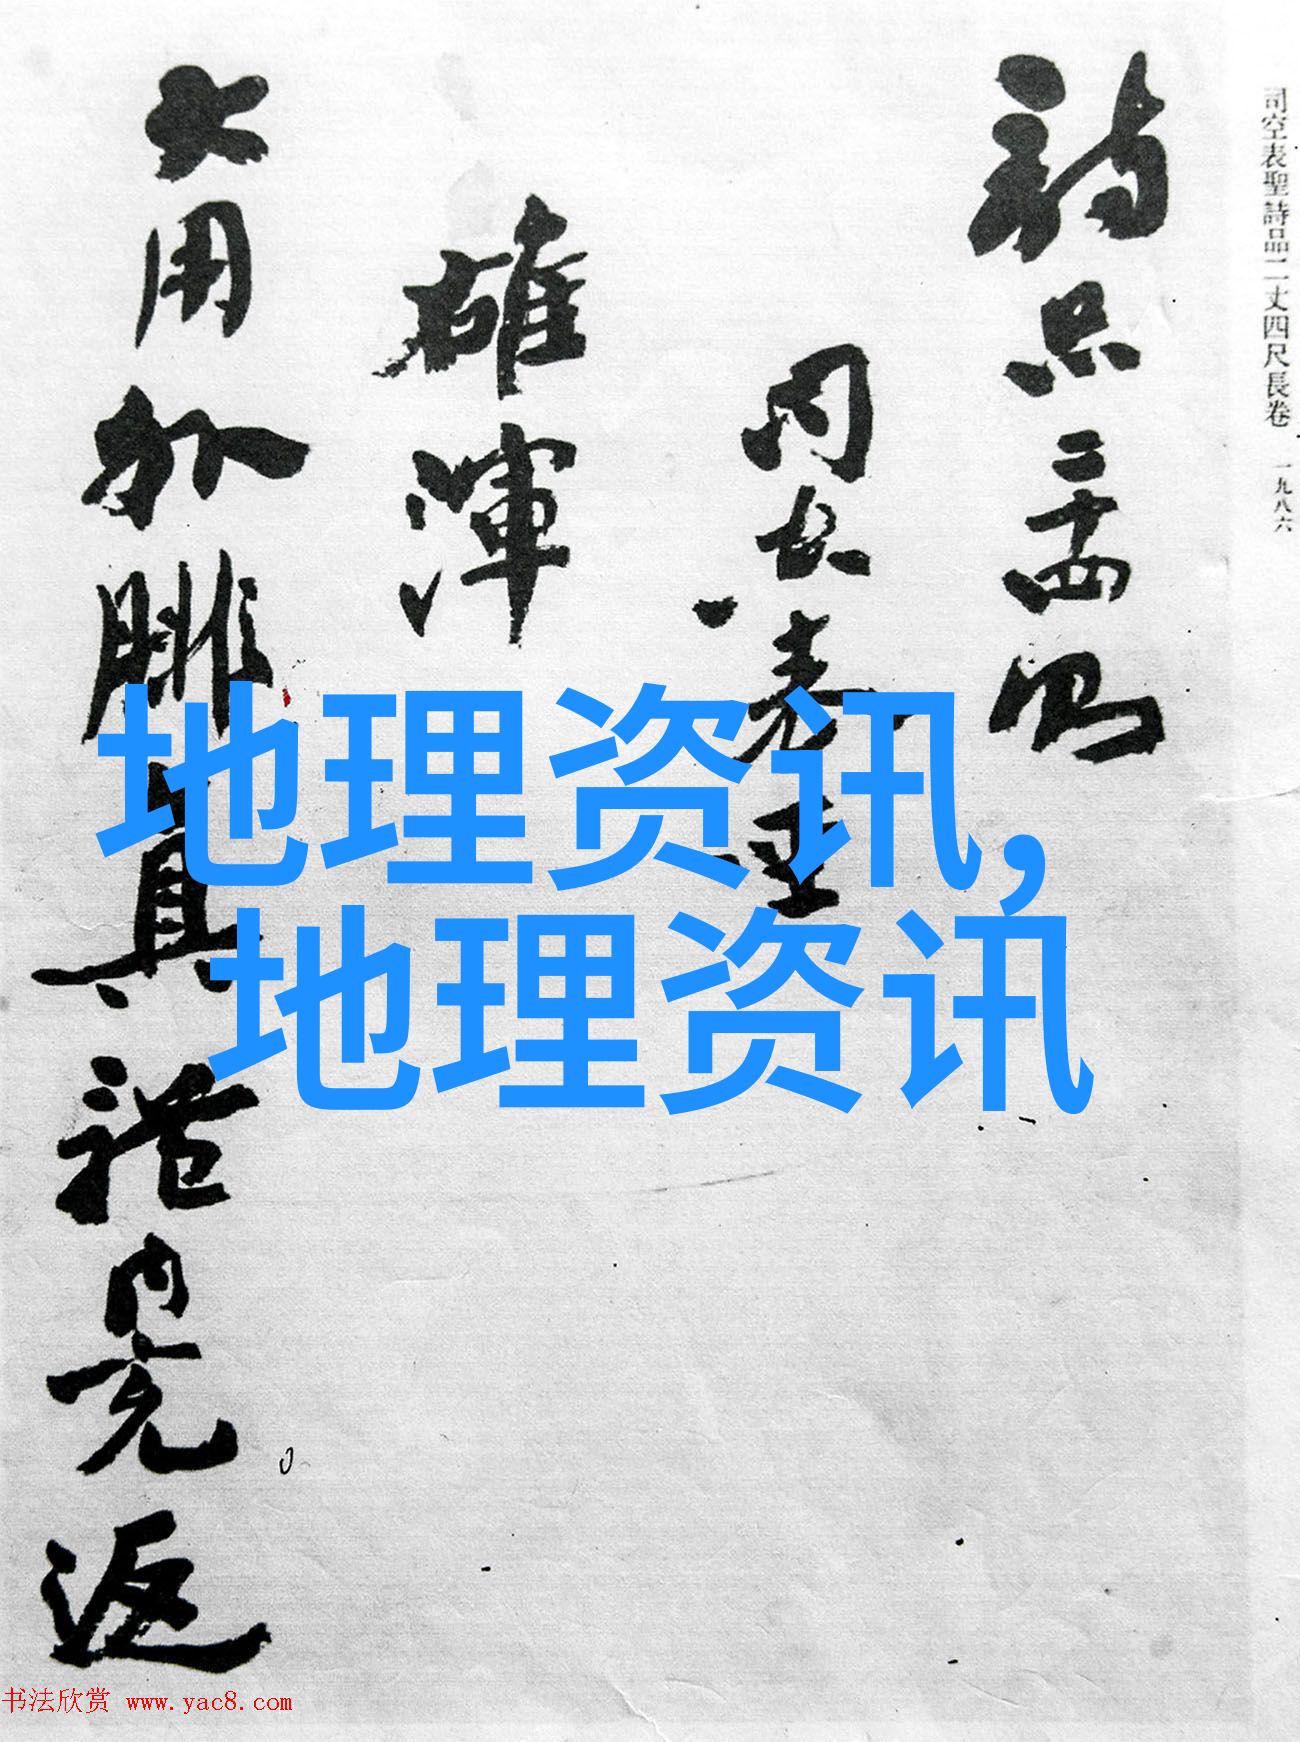 司空表聖詩品二丈四尺長卷 一九八六
詩品二十四則
雄渾
大用外腓真體内充返
地理资讯,
地理资讯
书法欣赏 www.yac8.com